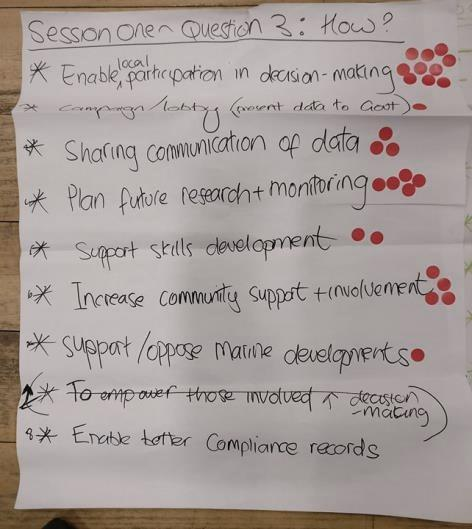 Session One - Question 3: How?
* Enable local participation in decision-making
* Campaign/lobby (present data to Govt)
* Sharing communication of data
* Plan future research + monitoring
* Support skills development
* Increase community support + involvement
* Support/oppose marine developments
* To empower those involved ↑ decision
-making
8* Enable better Compliance records